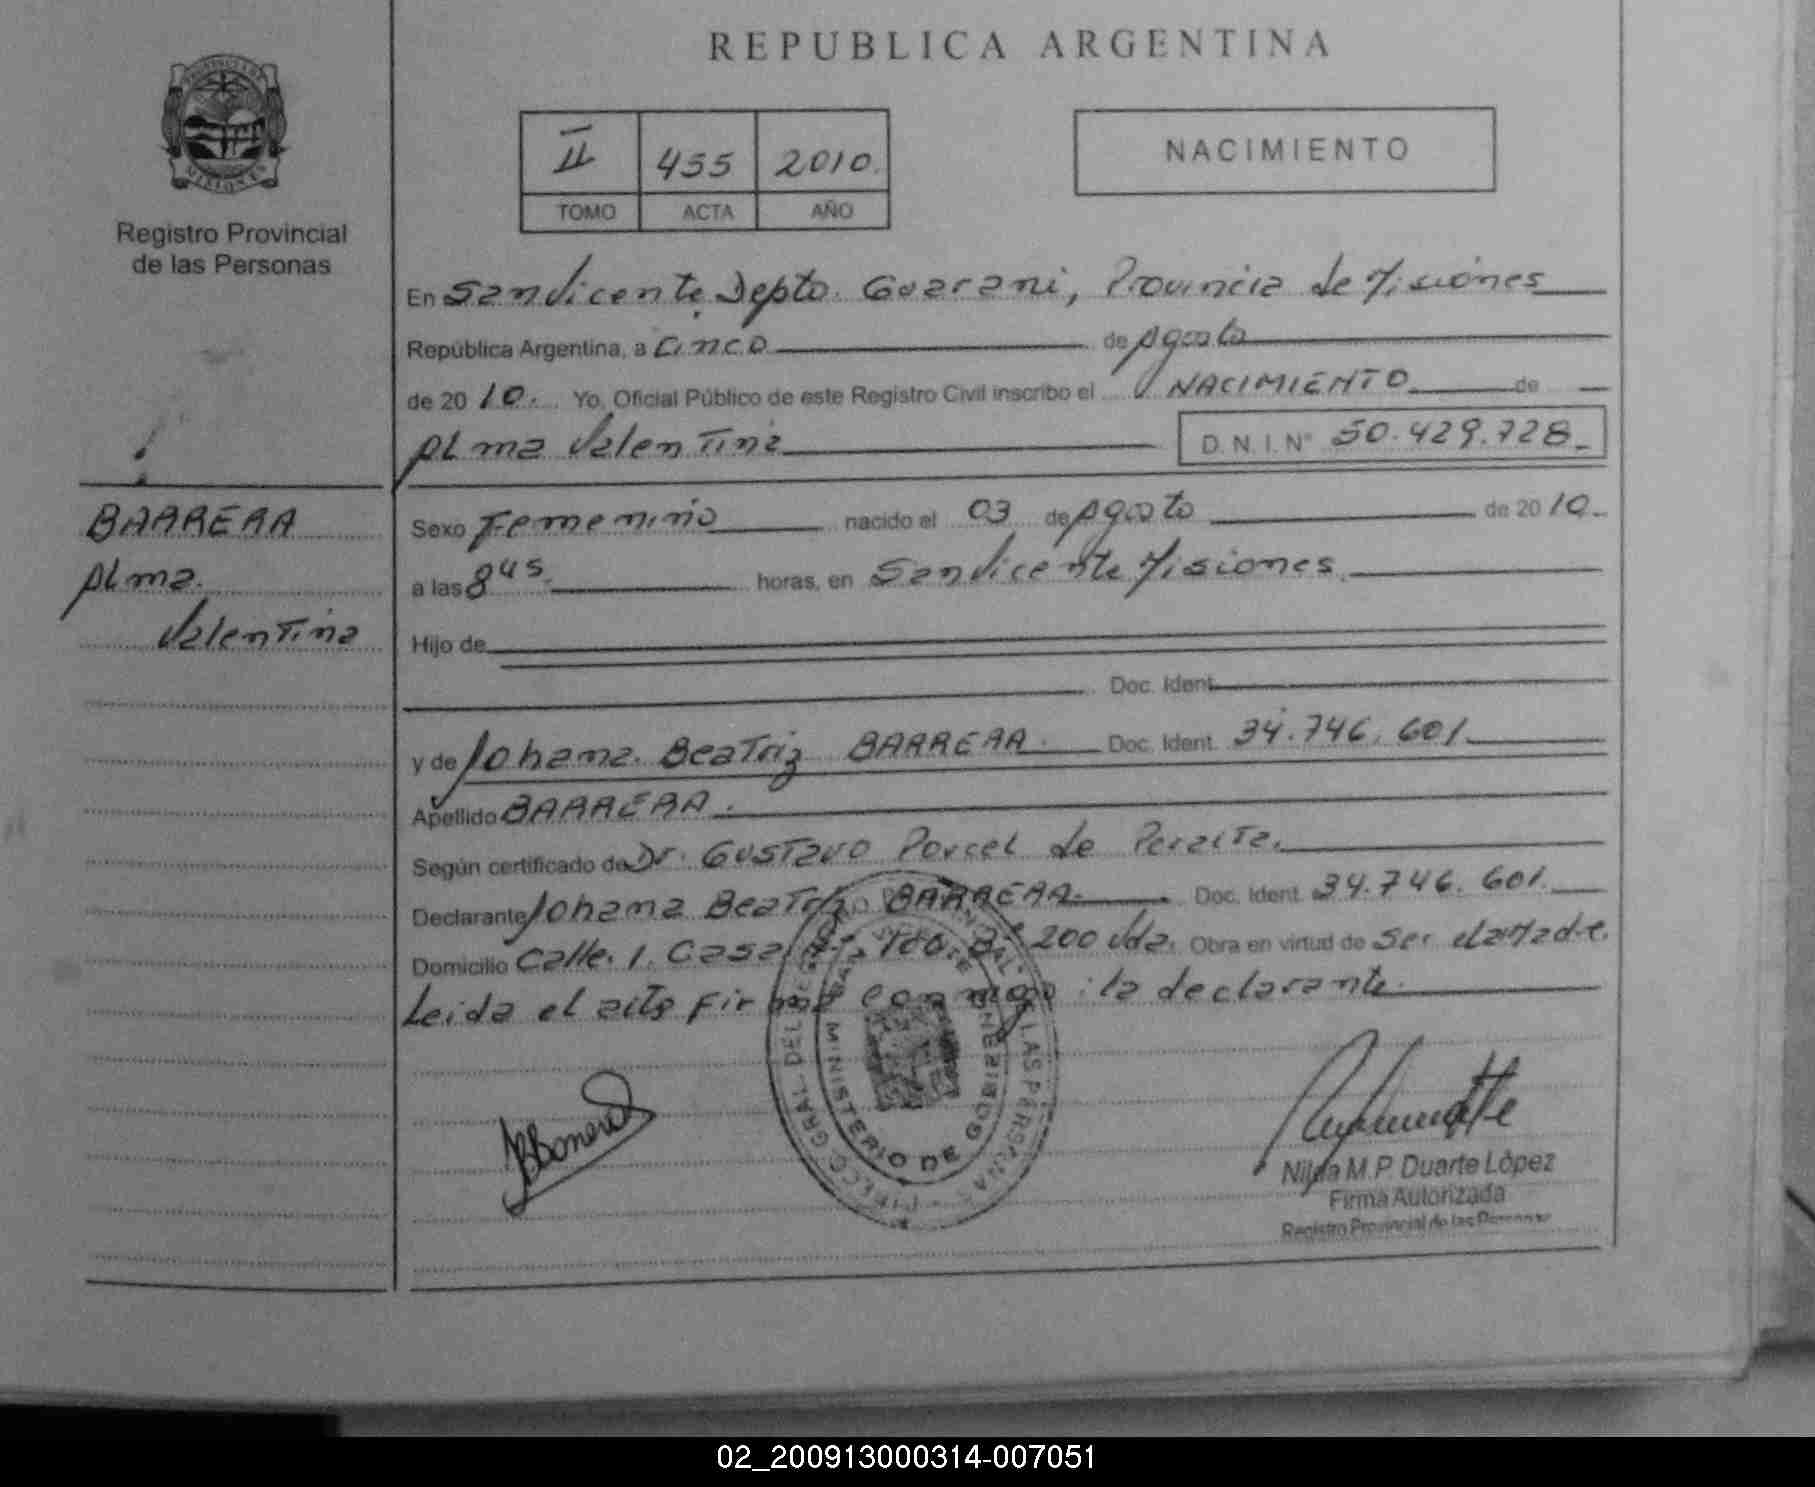 REPUBLICA ARGENTINA
PROVINCIA DE
MISIONES
Registro Provincial
de las Personas
II 455 2010.
TOMO ACTA AÑO
NACIMIENTO
En San Vicente Depto. Guarani, Provincia de Misiones
República Argentina, a Cinco de Agosto
de 20 10. Yo, Oficial Público de este Registro Civil inscribo el NACIMIENTO de
Alma Valentina D. N. I. N° 50.429.728_
BARRERA
Alma.
Valentina
Sexo Femenino nacido el 03 de Agosto de 20 10.
a las 8 45. horas, en San Vicente Misiones.
Hijo de
Doc. Ident.
y de Johana. Beatriz BARRERA. Doc. Ident. 34.746.601
Apellido BARRERA.
Según certificado de Dr. Gustavo Porcel de Peralta.
Declarante Johana Beatriz BARRERA. Doc. Ident. 34.746.601.
Domicilio Calle. 1. Casa N° 100 B° 200 Vda. Obra en virtud de ser la madre.
Leida el acta firma conmigo: la declarante.
MINISTERIO DE GOBIERNO
LAS PERSONAS
Nilda M.P. Duarte López
Firma Autorizada
Registro Provincial de las Personas
02_200913000314-007051